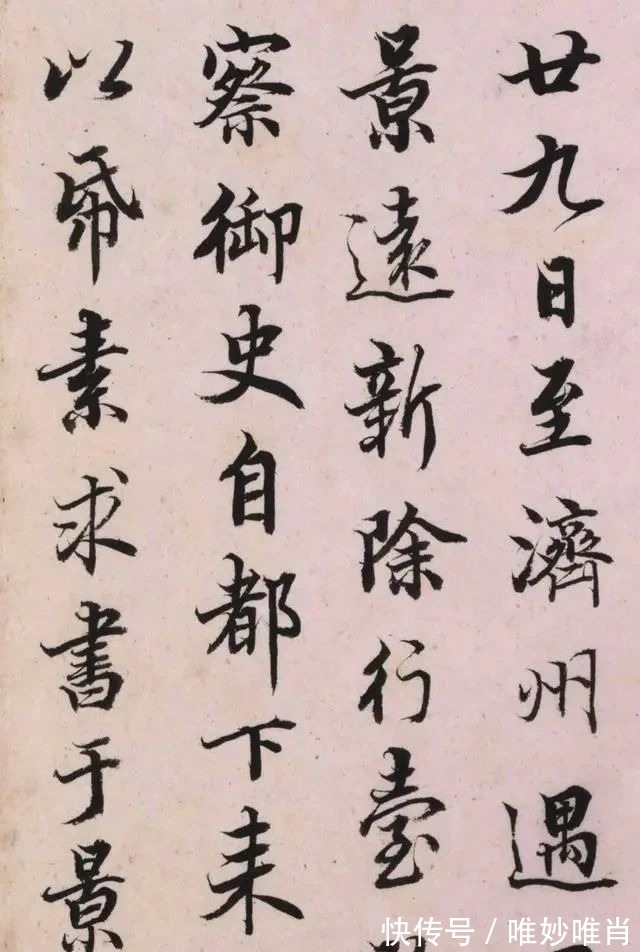 廿九日至濟州遇
景遠新除行臺
察御史自都下来
以帋素求書于景
快传号/唯妙唯肖